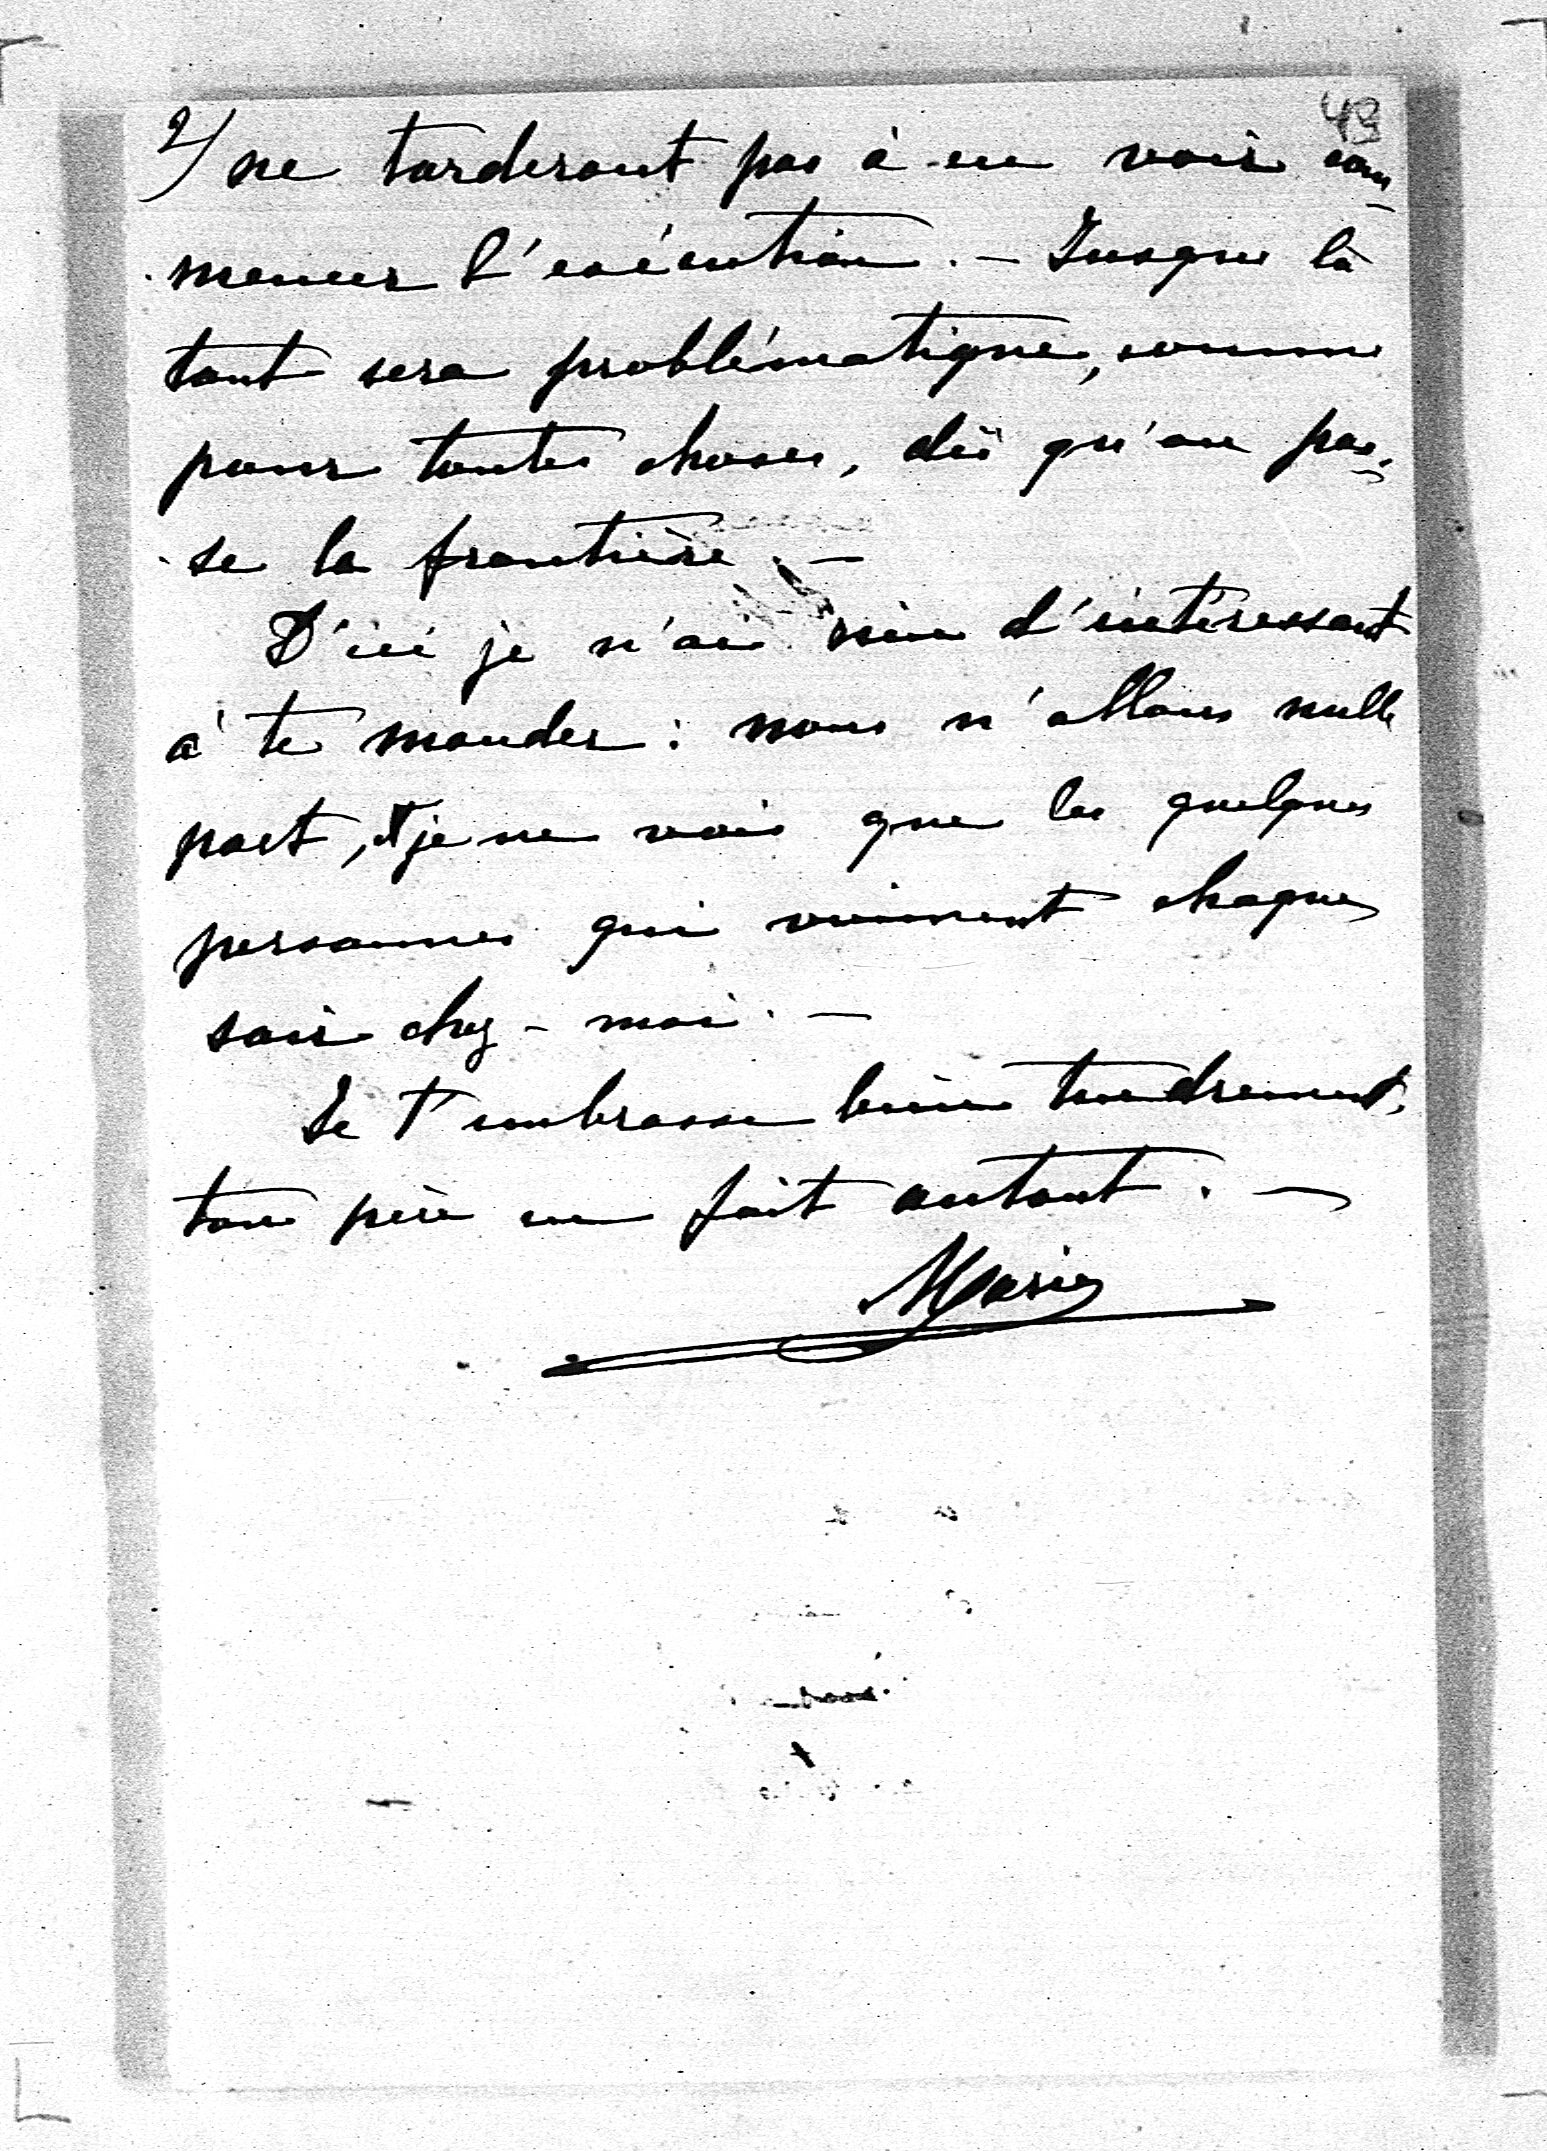 49
2/ ne tarderont pas à en voir com-
mencer l'exécution. — Jusque là
tout sera problématique, comme
pour toutes choses, dès qu'on pas-
se la frontière. —
D'ici je n'ai rien d'intéressant
à te mander : nous n'allons nulle
part, et je ne vois que les quelques
personnes qui viennent chaque
soir chez-moi. —
Je t'embrasse bien tendrement,
ton père en fait autant. —
Marie